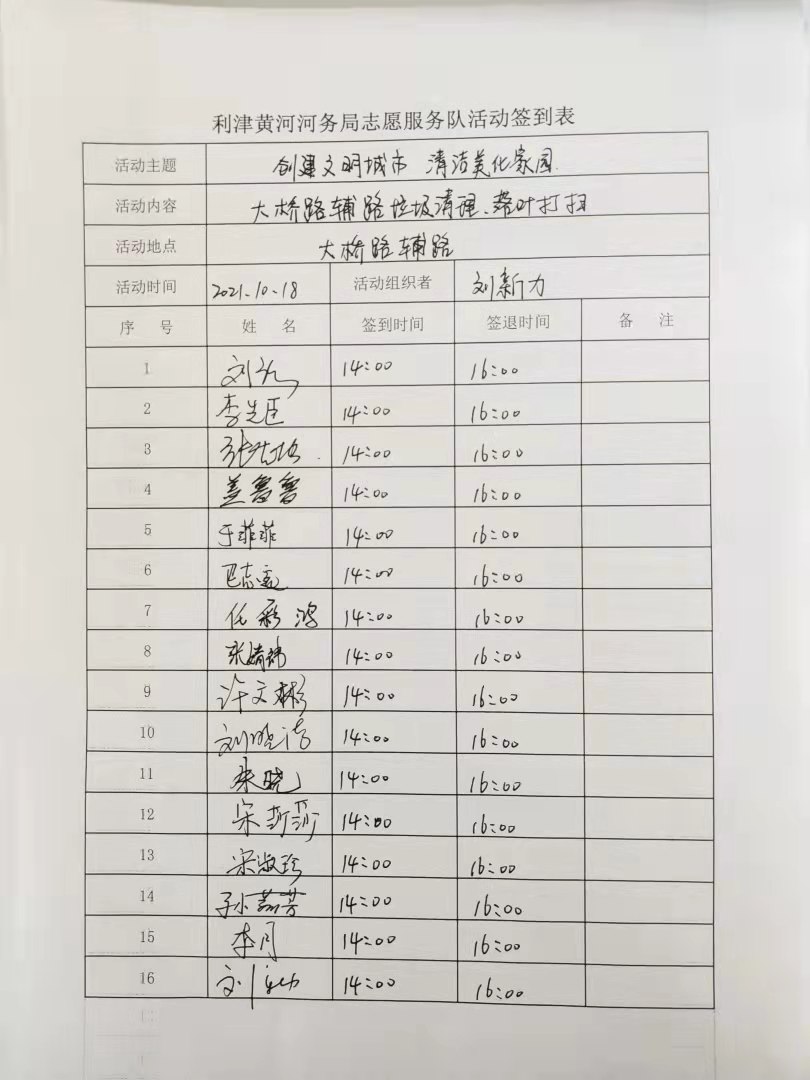 利津黄河河务局志愿服务队活动签到表
活动主题 创建文明城市 清洁美化家园
活动内容 大桥路辅路垃圾清理、落叶打扫
活动地点 大桥路辅路
活动时间 2021.10.18 活动组织者 刘新力
序 号 姓 名 签到时间 签退时间 备 注
1 14:00 16:00
2 李先臣 14:00 16:00
3 14:00 16:00
4 盖鲁鲁 14:00 16:00
5 于菲菲 14:00 16:00
6 巴志远 14:00 16:00
7 任彩鸿 14:00 16:00
8 14:00 16:00
9 许文彬 14:00 16:00
10 刘晓涛 14:00 16:00
11 朱晓 14:00 16:00
12 14:00 16:00
13 宋淑珍 14:00 16:00
14 孙荔芳 14:00 16:00
15 李月 14:00 16:00
16 14:00 16:00